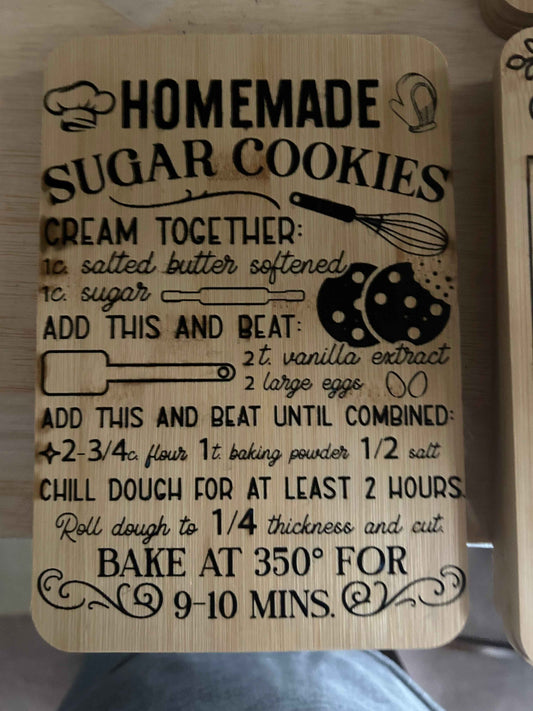 HOMEMADE
SUGAR COOKIES
CREAM TOGETHER:
1c. salted butter softened
1c. sugar
ADD THIS AND BEAT:
2 t. vanilla extract
2 large eggs
ADD THIS AND BEAT UNTIL COMBINED:
2-3/4c. flour 1t. baking powder 1/2 salt
CHILL DOUGH FOR AT LEAST 2 HOURS.
Roll dough to 1/4 thickness and cut.
BAKE AT 350° FOR
9-10 MINS.